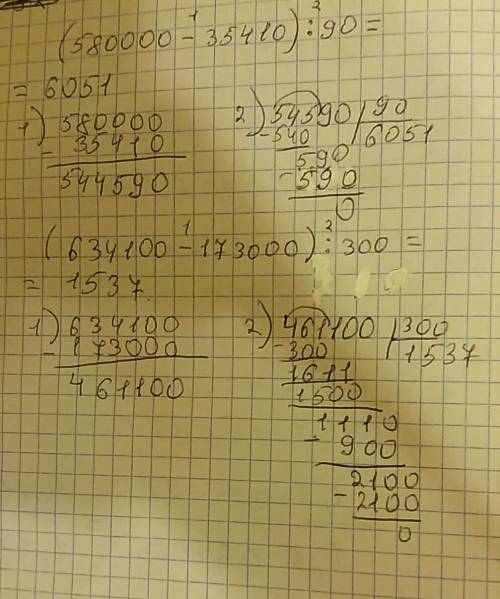 (580000 - 35410) : 90 =
1 2
= 6051
1) 580000
- 35410
544590
2) 54590 | 90
- 540 | 6051
590
- 590
0
(634100 - 173000) : 300 =
1 2
= 1537
1) 634100
- 173000
461100
2) 461100 | 300
- 300 | 1537
1611
1500
1110
- 900
2100
- 2100
0